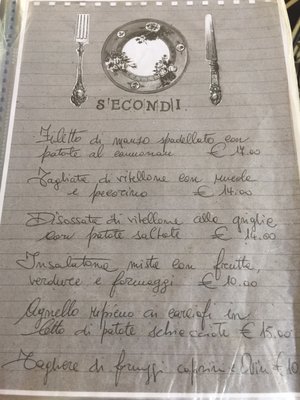 SECONDI
Filetto di manzo spadellato con
patate al carbonare € 17.00
Tagliata di vitellone con rucola
e pecorino € 14.00
Dissossata di vitellone alla griglia
con patate saltate € 14.00
Insalatona mista con frutta,
verdure e formaggi € 10.00
Agnello ripieno ai carciofi in
letto di patate schiacciate € 15.00
Tagliere di formaggi caprini e Ovini € 10